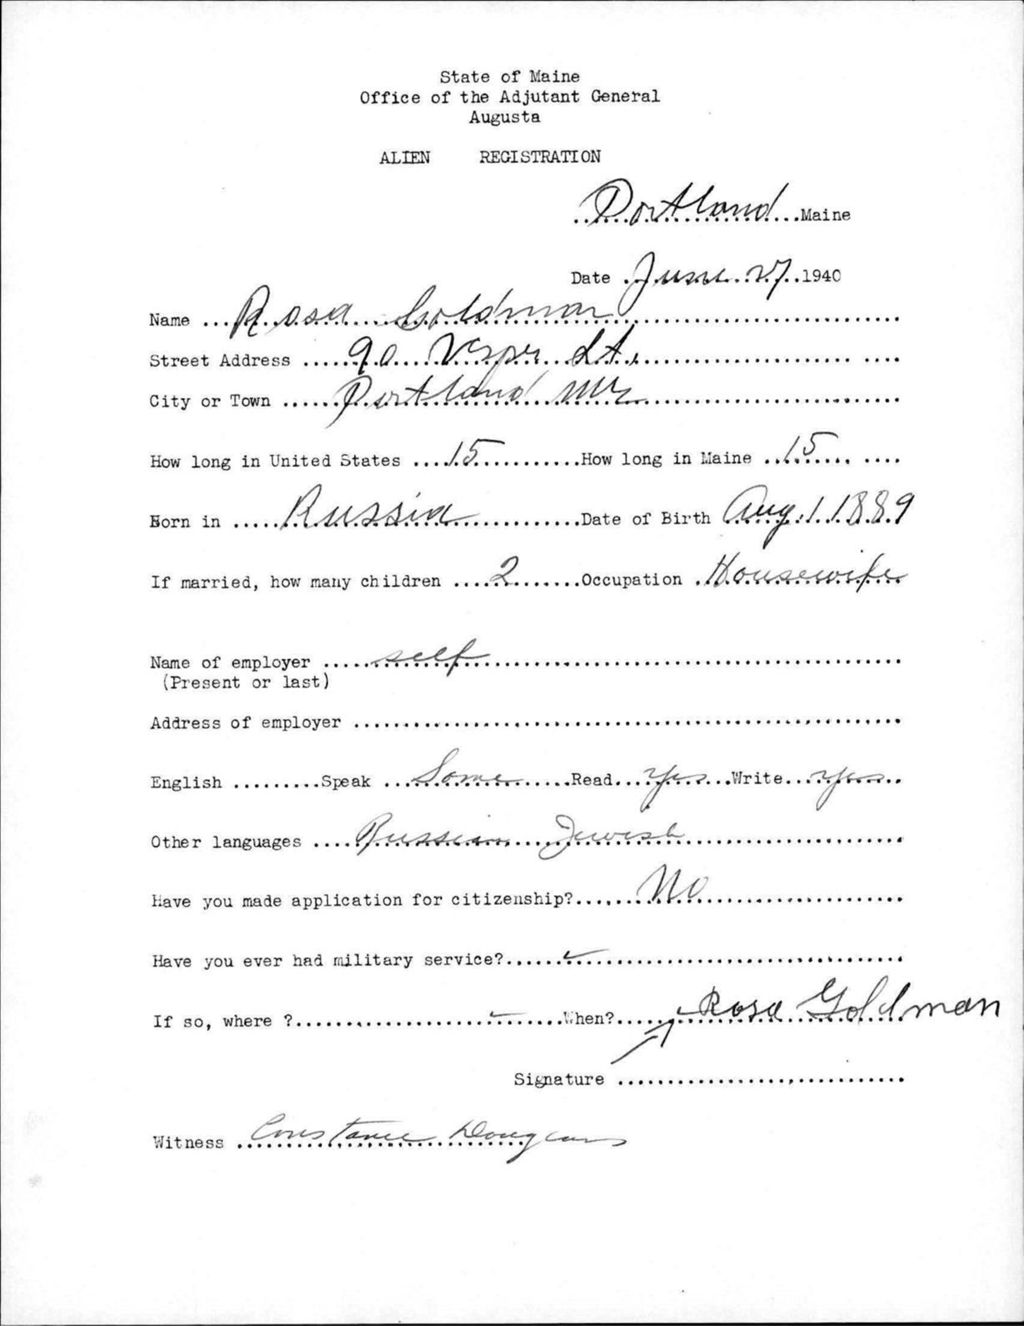 State of Maine
Office of the Adjutant General
Augusta
ALIEN REGISTRATION
Portland Maine
Date June 27 1940
Name Rosa Goldman
Street Address 90 Vesper St.
City or Town Portland Me
How long in United States 15 How long in Maine 15
Born in Russia Date of Birth Aug 1 1889
If married, how many children 2 Occupation Housewife
Name of employer self
(Present or last)
Address of employer
English Speak Some Read yes Write yes
Other languages Russian Jewish
Have you made application for citizenship? No
Have you ever had military service?
If so, where ? When? Rosa Goldman
Signature
Witness Constance